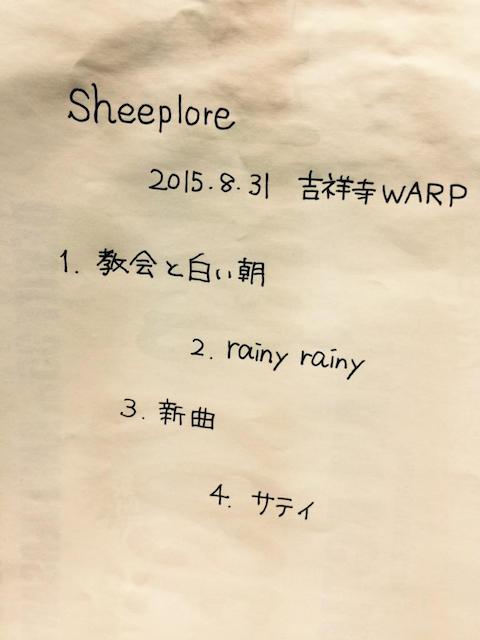 Sheeplore
2015.8.31 吉祥寺WARP
1. 教会と白い朝
2. rainy rainy
3. 新曲
4. サティ